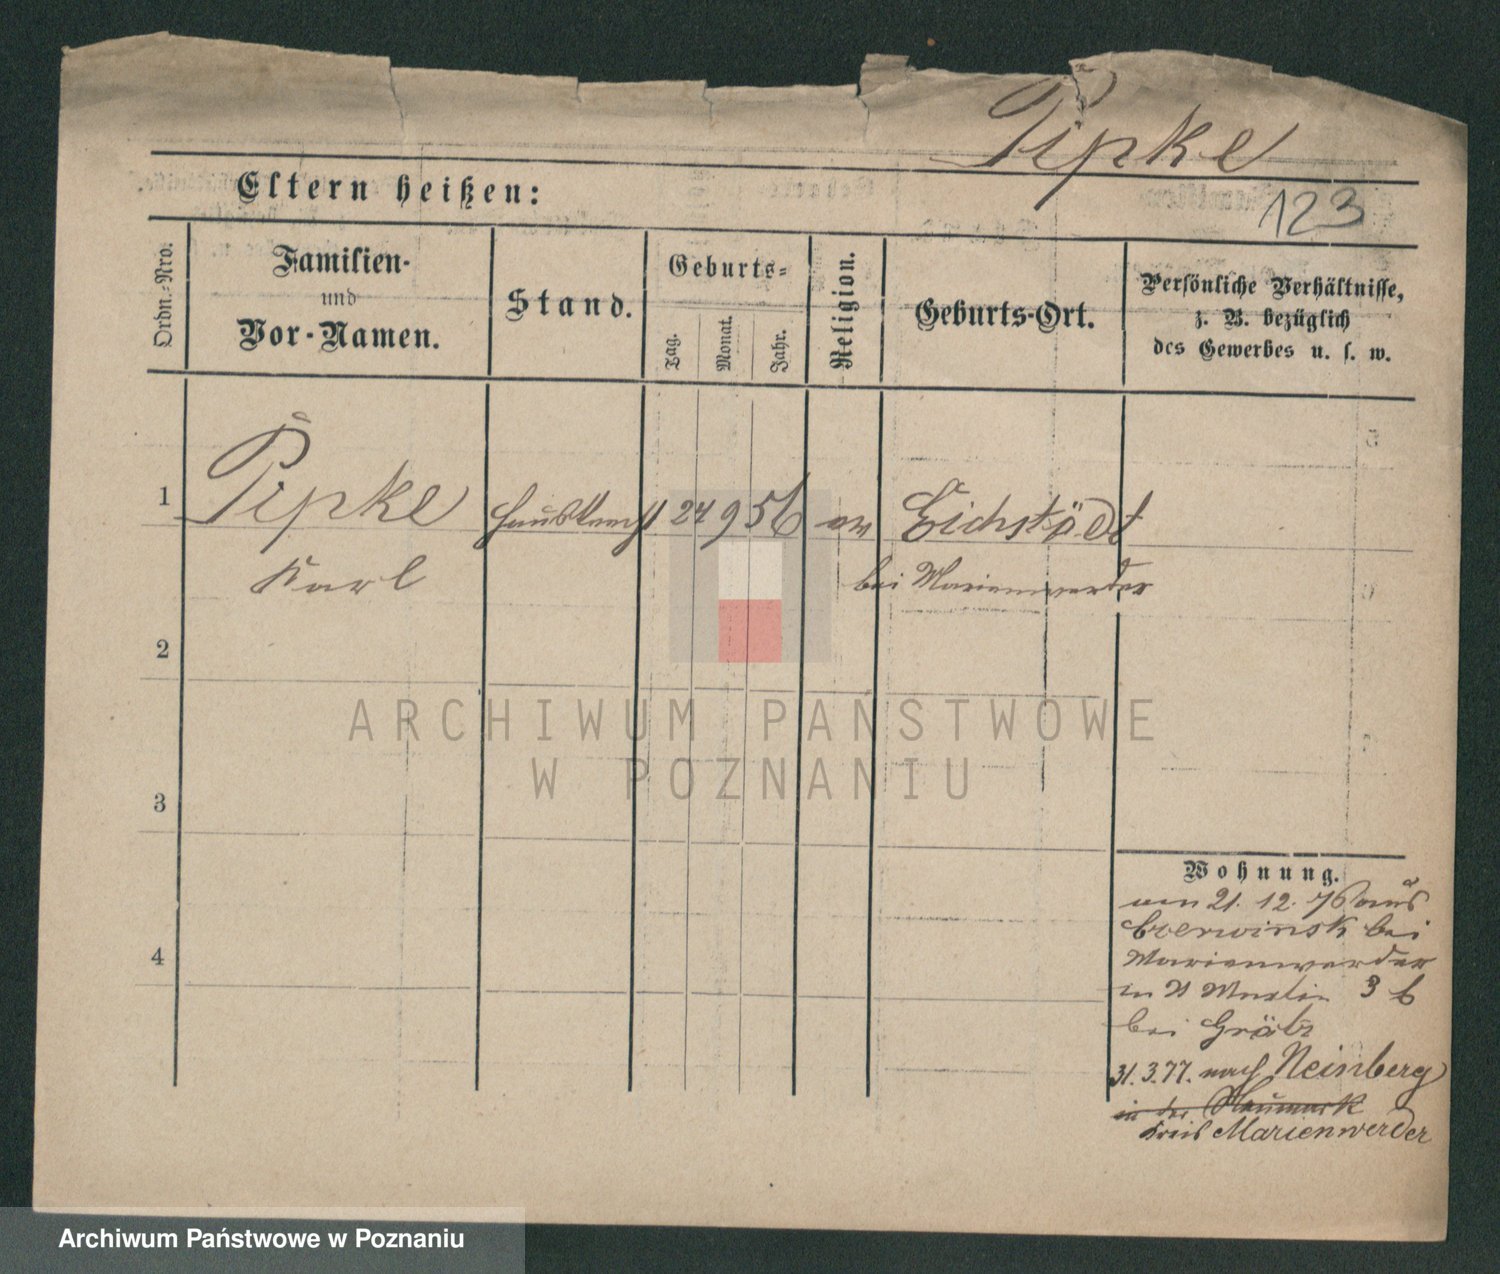 Pipke
Eltern heißen:
123
Ordn.-Nro.
Familien-
und
Vor-Namen.
Stand.
Geburts-
Tag.
Monat.
Jahr.
Religion.
Geburts-Ort.
Persönliche Verhältnisse,
z. B. bezüglich
des Gewerbes u. s. w.
1
Pipke
Hausknecht
27
9
56
ev
Eichstädt
Karl
bei Marienwerder
2
3
4
Wohnung.
von 21. 12. 76 aus
Czerwinsk bei
Marienwerder
in
bei Grätz
31. 3. 77. nach Neinberg
in der Neumark
Kreis Marienwerder
ARCHIWUM PAŃSTWOWE
W POZNANIU
Archiwum Państwowe w Poznaniu